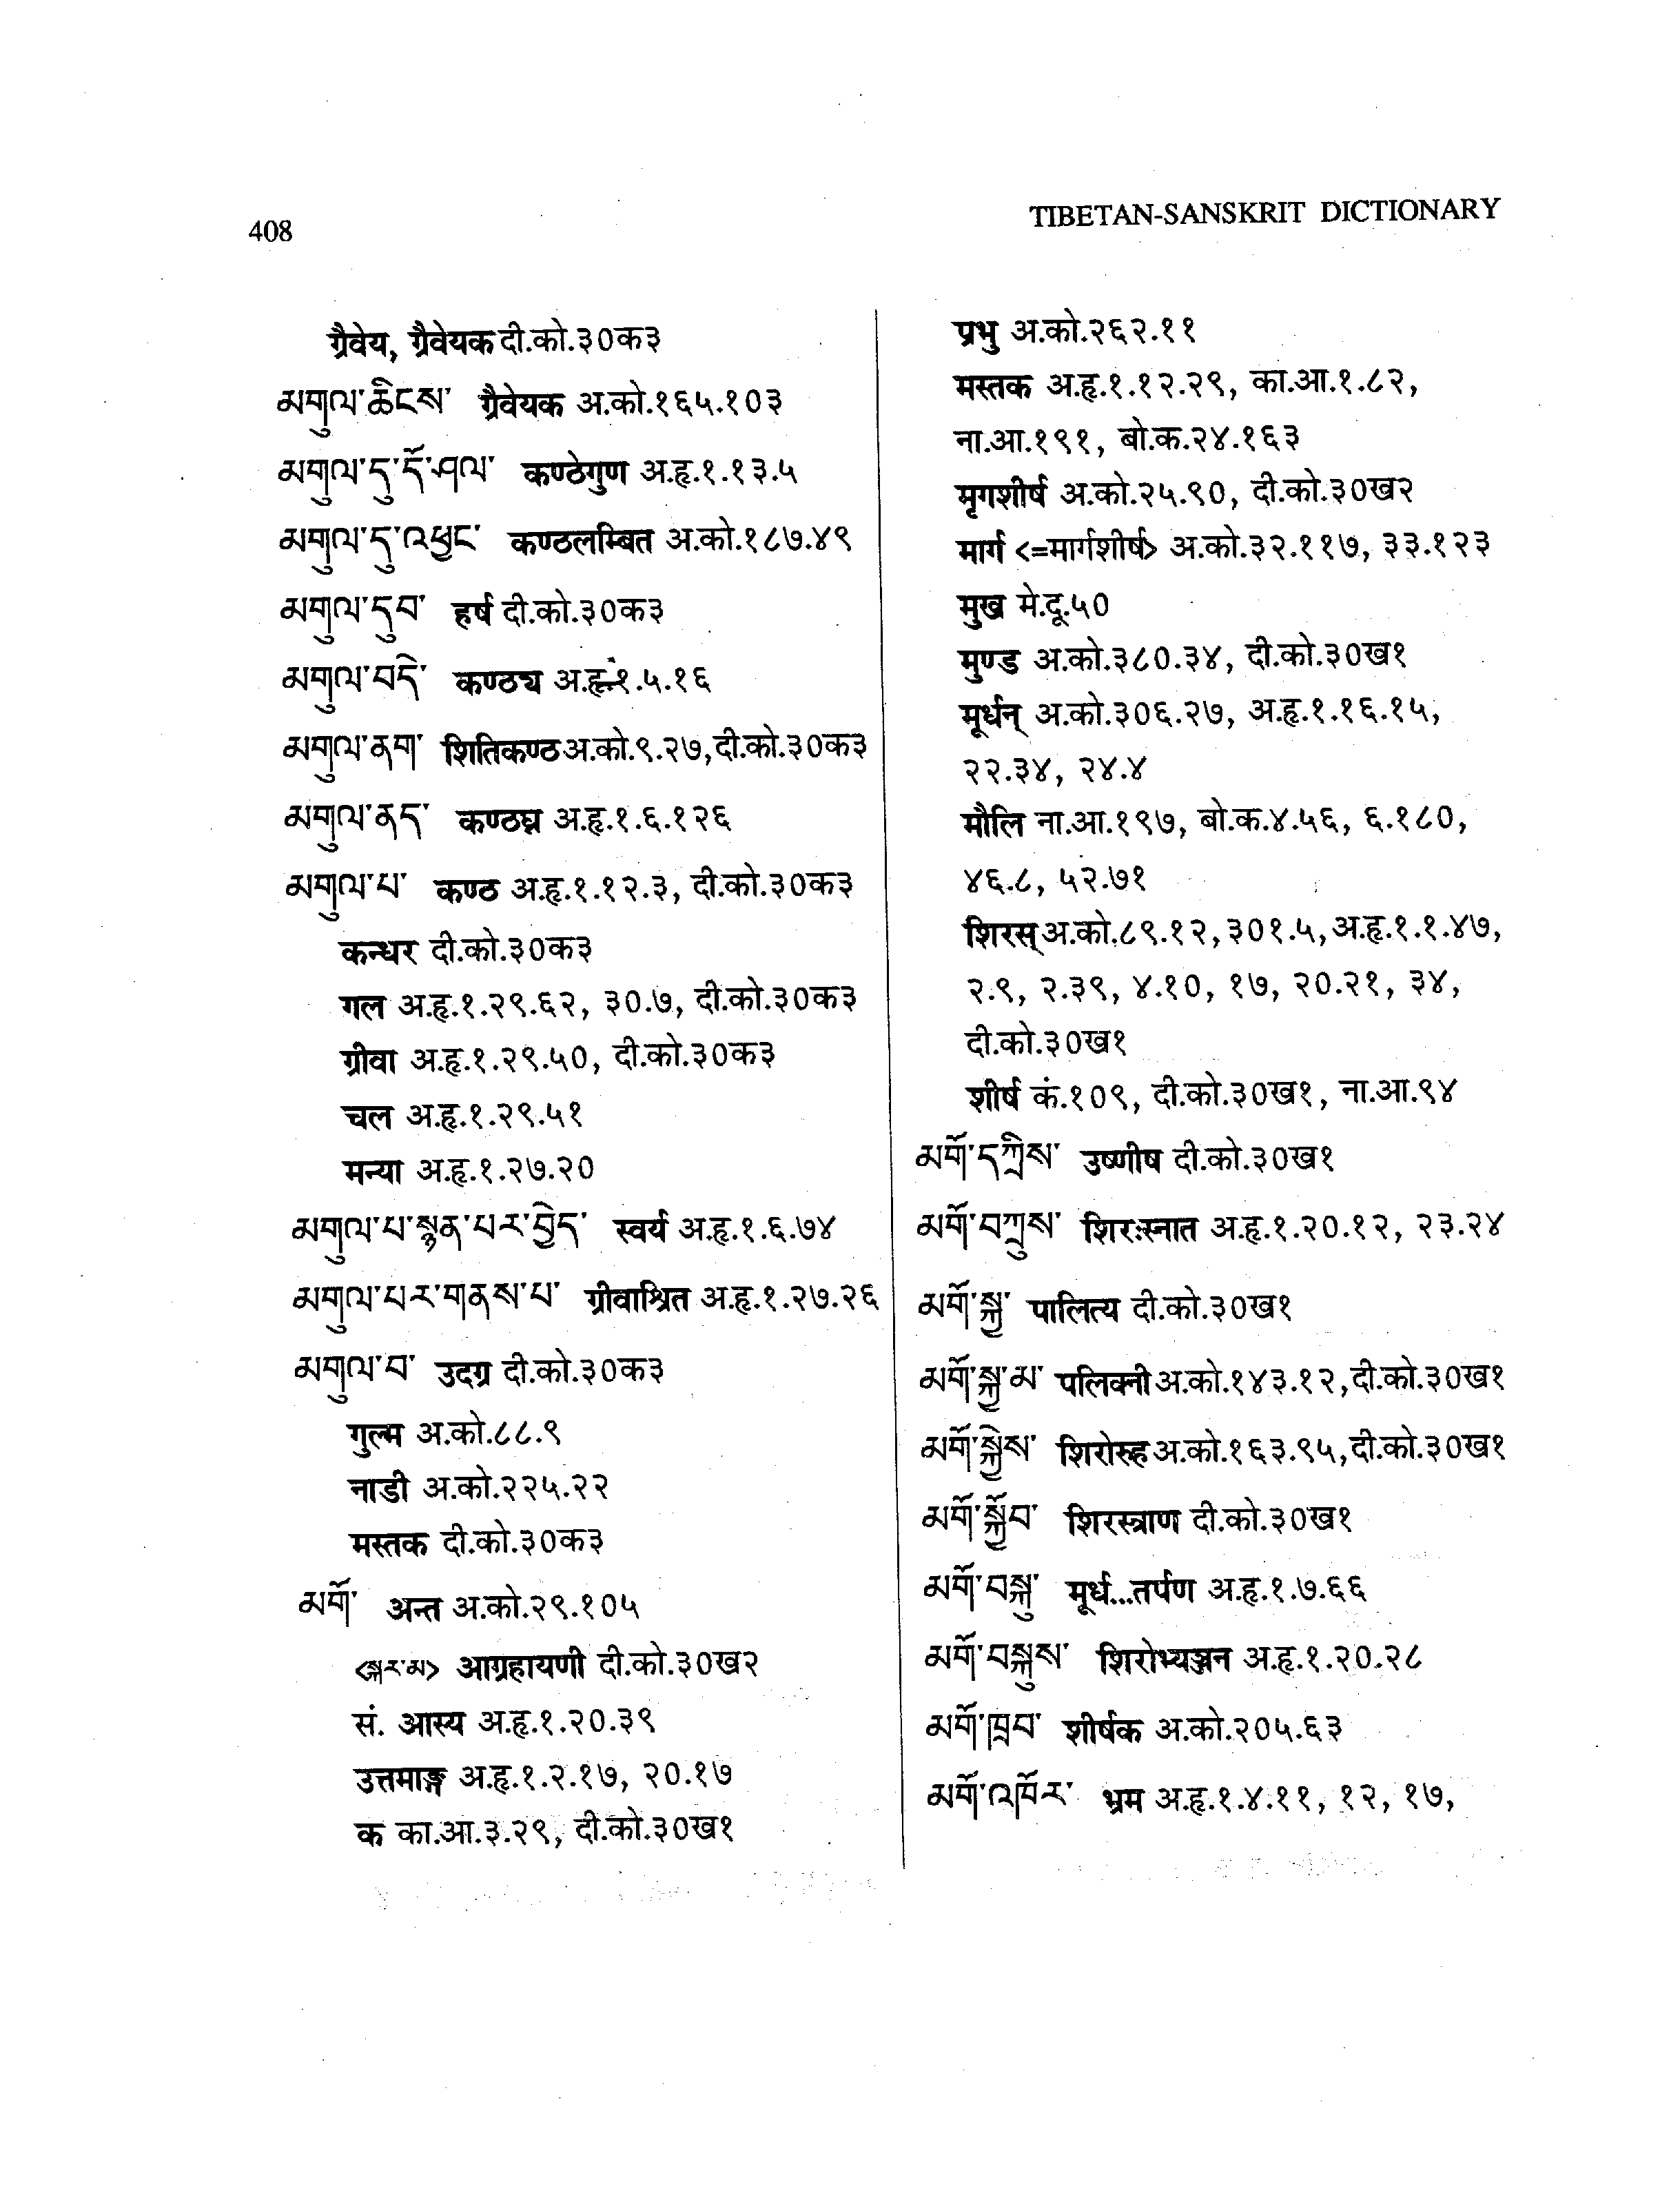 408
TIBETAN-SANSKRIT DICTIONARY
ग्रैवेय, ग्रैवेयक दी.को.३०क३
མགུལ་ཆིངས་ ग्रैवेयक अ.को.१६५.१०३
མགུལ་དུ་དོ་ཤལ་ कण्ठेगुण अ.हृ.१.१३.५
མགུལ་དུ་འཕྱང་ कण्ठलम्बित अ.को.१८७.४९
མགུལ་དུབ་ हर्ष दी.को.३०क३
མགུལ་བདེ་ कण्ठ्य अ.हृ.१.५.१६
མགུལ་ནག་ शितिकण्ठ अ.को.९.२७, दी.को.३०क३
མགུལ་ནད་ कण्ठघ्न अ.हृ.१.६.१२६
མགུལ་པ་ कण्ठ अ.हृ.१.१२.३, दी.को.३०क३
कन्धर दी.को.३०क३
गल अ.हृ.१.२९.६२, ३०.७, दी.को.३०क३
ग्रीवा अ.हृ.१.२९.५०, दी.को.३०क३
चल अ.हृ.१.२९.५१
मन्या अ.हृ.१.२७.२०
མགུལ་པ་སྙན་པར་བྱེད་ स्वर्य अ.हृ.१.६.७४
མགུལ་པར་གནས་པ་ ग्रीवाश्रित अ.हृ.१.२७.२६
མགུལ་བ་ उदग्र दी.को.३०क३
गुल्म अ.को.८८.९
नाडी अ.को.२२५.२२
मस्तक दी.को.३०क३
མགོ་ अन्त अ.को.२९.१०५
<སྐར་མ> आग्रहायणी दी.को.३०ख२
सं. आस्य अ.हृ.१.२०.३९
उत्तमाङ्ग अ.हृ.१.२.१७, २०.१७
क का.आ.३.२९, दी.को.३०ख१
प्रभु अ.को.२६२.११
मस्तक अ.हृ.१.१२.२९, का.आ.१.८२,
ना.आ.१९१, बो.क.२४.१६३
मृगशीर्ष अ.को.२५.९०, दी.को.३०ख२
मार्ग <=मार्गशीर्ष> अ.को.३२.११७, ३३.१२३
मुख मे.दू.५०
मुण्ड अ.को.३८०.३४, दी.को.३०ख१
मूर्धन् अ.को.३०६.२७, अ.हृ.१.१६.१५,
२२.३४, २४.४
मौलि ना.आ.१९७, बो.क.४.५६, ६.१८०,
४६.८, ५२.७१
शिरस् अ.को.८९.१२, ३०१.५, अ.हृ.१.१.४७,
२.९, २.३९, ४.१०, १७, २०.२१, ३४,
दी.को.३०ख१
शीर्ष कं.१०९, दी.को.३०ख१, ना.आ.९४
མགོ་དཀྲིས་ उष्णीष दी.को.३०ख१
མགོ་བཀྲུས་ शिरःस्नात अ.हृ.१.२०.१२, २३.२४
མགོ་སྐྱ་ पालित्य दी.को.३०ख१
མགོ་སྐྱ་མ་ पलिक्नी अ.को.१४३.१२, दी.को.३०ख१
མགོ་སྐྱེས་ शिरोरुह अ.को.१६३.९५, दी.को.३०ख१
མགོ་སྐྱོབ་ शिरस्त्राण दी.को.३०ख१
མགོ་བསྐུ་ मूर्ध...तर्पण अ.हृ.१.७.६६
མགོ་བསྐུས་ शिरोभ्यञ्जन अ.हृ.१.२०.२८
མགོ་ཁྲབ་ शीर्षक अ.को.२०५.६३
མགོ་འཁོར་ भ्रम अ.हृ.१.४.११, १२, १७,